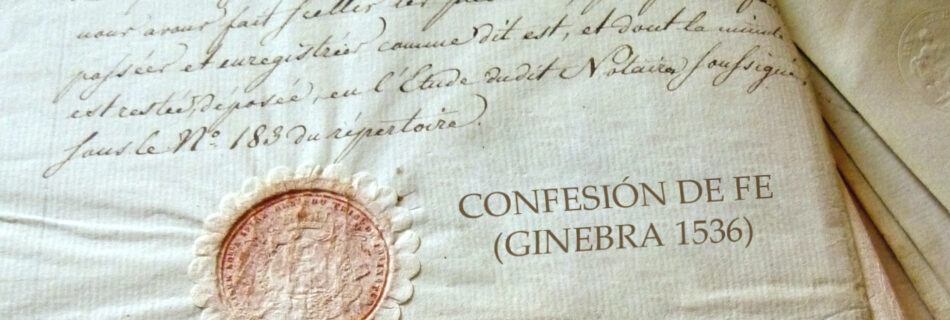 nous avons fait sceller les
passées et enregistrées comme dit est, et dont la minute
est restée, déposée, en l'Etude dudit Notaire soussigné
sous le Nº. 183 du répertoire.
CONFESIÓN DE FE
(GINEBRA 1536)